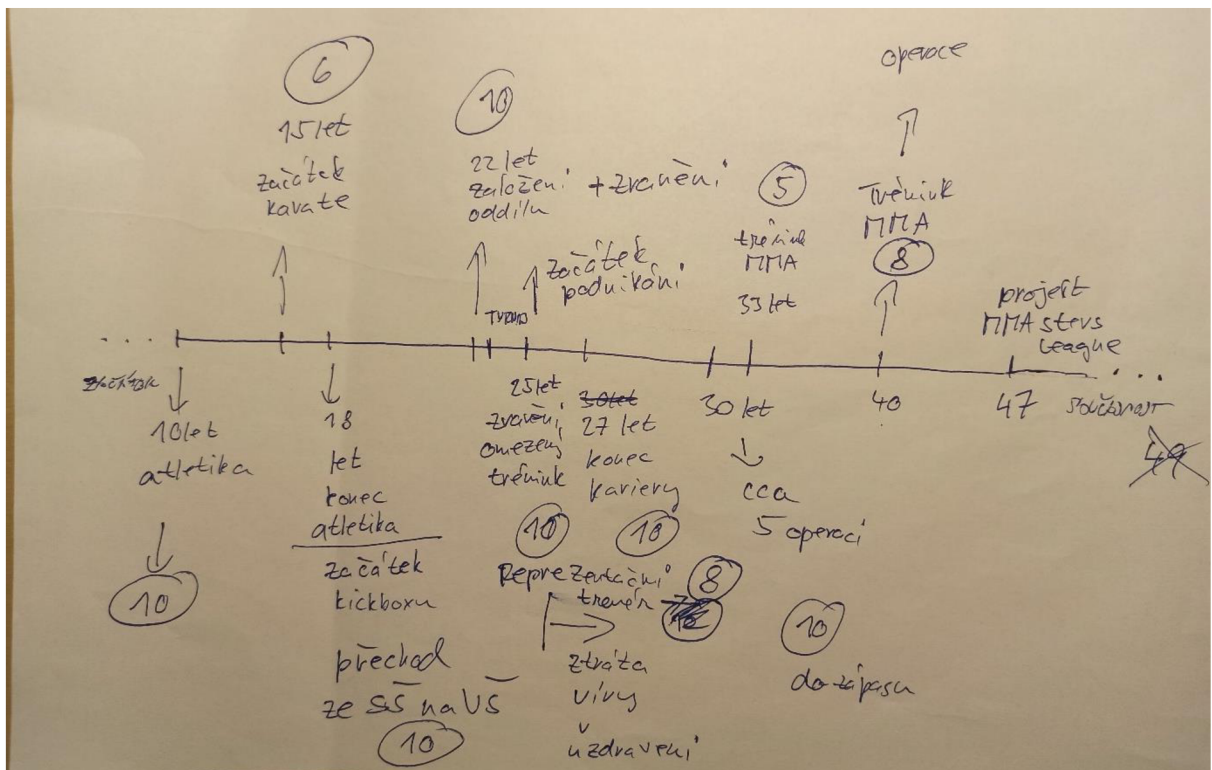 6
15 let
začátek
karate
10
22 let
založení
oddílu
+ zranění
začátek
podnikání
5
trénink
MMA
33 let
operace
Trénink
MMA
8
projekt
MMA stars
League
10 let
atletika
10
18
let
konec
atletika
začátek
kickboxu
přechod
ze SŠ na VŠ
10
25 let
zranění,
omezený
trénink
10
30 let
27 let
konec
kariery
10
Reprezentační
trenér
8
ztráta
víry
v
uzdravení
30 let
cca
5 operací
10
do zápasu
40
47
současnost
49